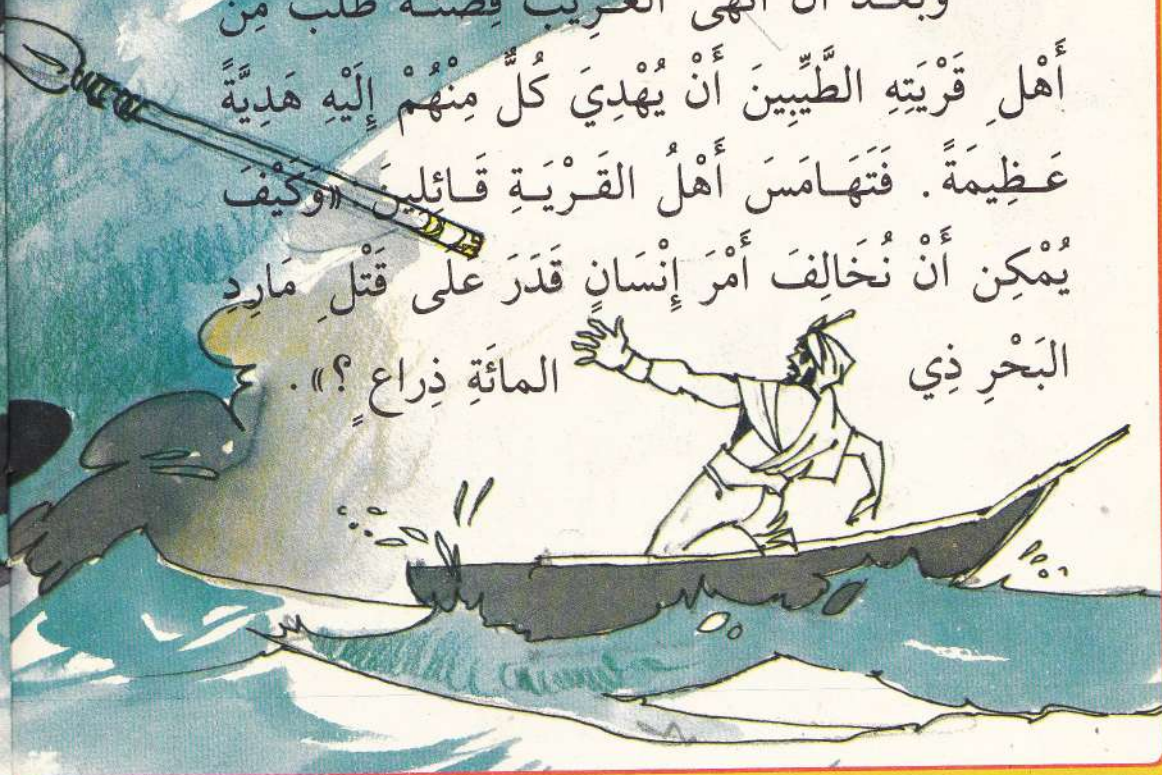 وبعد أن أنهى الغريب قصته طلب من
أَهْلِ قَرْيَتِهِ الطَّيِّبِينَ أَنْ يُهْدِيَ كُلٌّ مِنْهُمْ إِلَيْهِ هَدِيَّةً
عَظِيمَةً. فَتَهَامَسَ أَهْلُ القَرْيَةِ قَائِلِينَ «وَكَيْفَ
يُمْكِن أَنْ نُخَالِفَ أَمْرَ إِنْسَانٍ قَدَرَ عَلى قَتْلِ مَارِدِ
البَحْرِ ذِي المائَةِ ذِراعٍ؟».